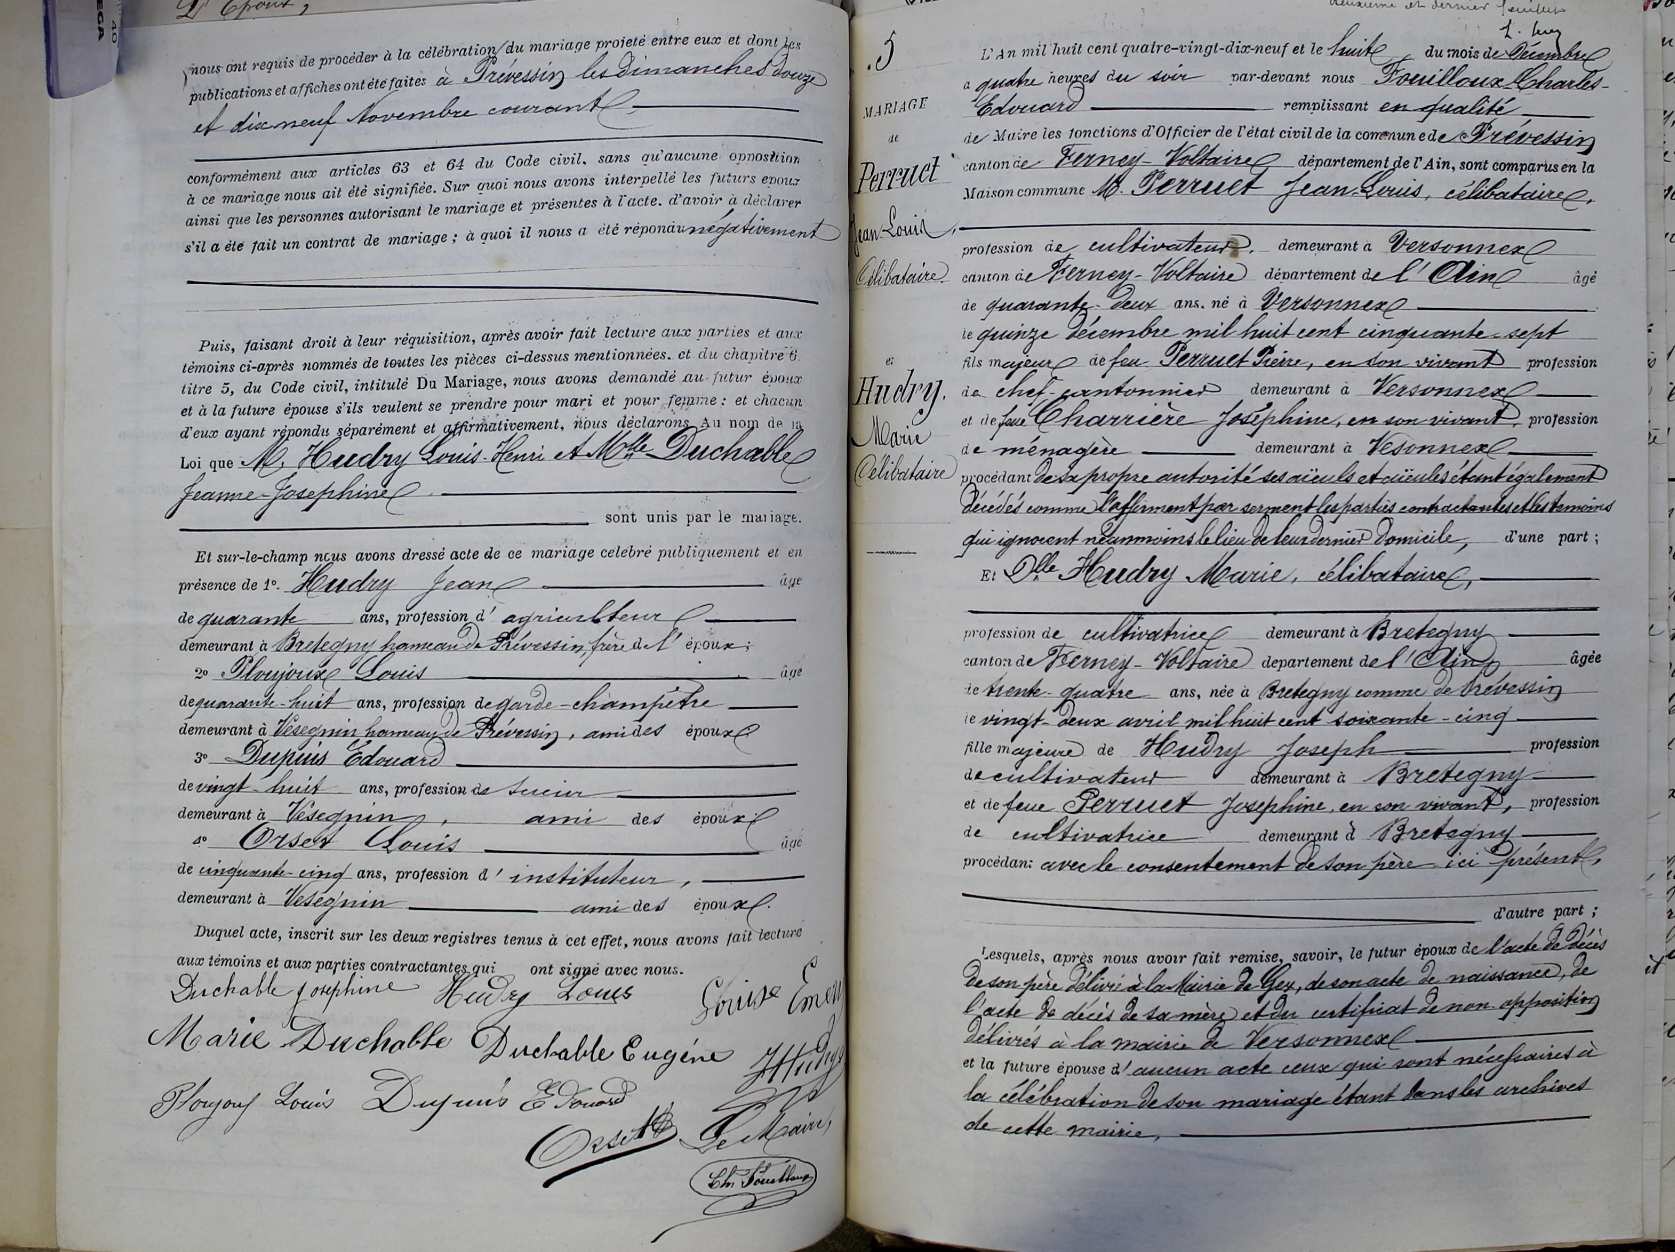 D'Epoux,
nous ont requis de procéder à la célébration du mariage projeté entre eux et dont les
publications et affiches ont été faites à Prévessin les dimanches douze
et dix neuf Novembre courant
conformément aux articles 63 et 64 du Code civil, sans qu'aucune opposition
à ce mariage nous ait été signifiée. Sur quoi nous avons interpellé les futurs époux
ainsi que les personnes autorisant le mariage et présentes à l'acte, d'avoir à déclarer
s'il a été fait un contrat de mariage ; à quoi il nous a été répondu négativement
Puis, faisant droit à leur réquisition, après avoir fait lecture aux parties et aux
témoins ci-après nommés de toutes les pièces ci-dessus mentionnées, et du chapitre 6
titre 5, du Code civil, intitulé Du Mariage, nous avons demandé au futur époux
et à la future épouse s'ils veulent se prendre pour mari et pour femme ; et chacun
d'eux ayant répondu séparément et affirmativement, nous déclarons Au nom de la
Loi que M. Hudry Louis-Henri et Melle Duchable
Jeanne-Josephine
sont unis par le mariage.
Et sur-le-champ nous avons dressé acte de ce mariage célébré publiquement et en
présence de 1º. Hudry Jean âgé
de quarante ans, profession d'agriculteur
demeurant à Bretegny hameau de Prévessin, frère de l'époux ;
2º Ploujoux Louis âgé
de quarante-huit ans, profession de garde-champêtre
demeurant à Vésegnin hameau de Prévessin, ami des époux
3º Dupuis Edouard
de vingt-huit ans, profession de scieur
demeurant à Vesegnin, ami des époux
4º Orset Louis âgé
de cinquante-cinq ans, profession d'instituteur,
demeurant à Vesegnin ami des époux.
Duquel acte, inscrit sur les deux registres tenus à cet effet, nous avons fait lecture
aux témoins et aux parties contractantes qui ont signé avec nous.
Duchable Josephine Hudry Louis Louise Emery
Marie Duchable Duchable Eugéne J Hudry
Ploujoux Louis Dupuis Edouard
Orset Le Maire,
Ch. Fouilloux
5
MARIAGE
de
Perruet
Jean-Louis,
Célibataire.
et
Hudry.
Marie
Célibataire
L'An mil huit cent quatre-vingt-dix-neuf et le huit du mois de Décembre
a quatre heures du soir par-devant nous Fouilloux Charles-
Edouard remplissant en qualité
de Maire les fonctions d'Officier de l'état civil de la commune de Prévessin
canton de Ferney-Voltaire département de l'Ain, sont comparus en la
Maison commune M. Perruet Jean-Louis, célibataire,
profession de cultivateur, demeurant à Versonnex
canton de Ferney-Voltaire département de l'Ain âgé
de quarante-deux ans, né à Versonnex
le quinze décembre mil huit cent cinquante-sept
fils majeur de feu Perruet Pierre, en son vivant profession
de chef-cantonnier demeurant à Versonnex
et de feue Charrière Joséphine, en son vivant, profession
de ménagère demeurant à Vesonnex
procédant de sa propre autorité ses aïeuls et aïeules étant également
décédés comme l'affirment par serment les parties contractantes et les temoins
qui ignorent néanmoins le lieu de leur dernier domicile, d'une part ;
Et Dlle Hudry Marie, célibataire,
profession de cultivatrice demeurant à Bretegny
canton de Ferney-Voltaire département de l'Ain âgée
de trente-quatre ans, née à Bretegny comme de Prévessin
le vingt-deux avril mil huit cent soixante-cinq
fille majeure de Hudry Joseph profession
de cultivateur demeurant à Bretegny
et de feue Perruet Josephine, en son vivant, profession
de cultivatrice demeurant à Bretegny
procédant avec le consentement de son père ici présent,
d'autre part ;
Lesquels, après nous avoir fait remise, savoir, le futur époux de l'acte de décès
de son père délivré à la Mairie de Gex, de son acte de naissance, de
l'acte de décès de sa mère et du certificat de non opposition
délivrés à la mairie de Versonnex
et la future épouse d'aucun acte ceux qui sont nécessaires à
la célébration de son mariage étant dans les archives
de cette mairie,